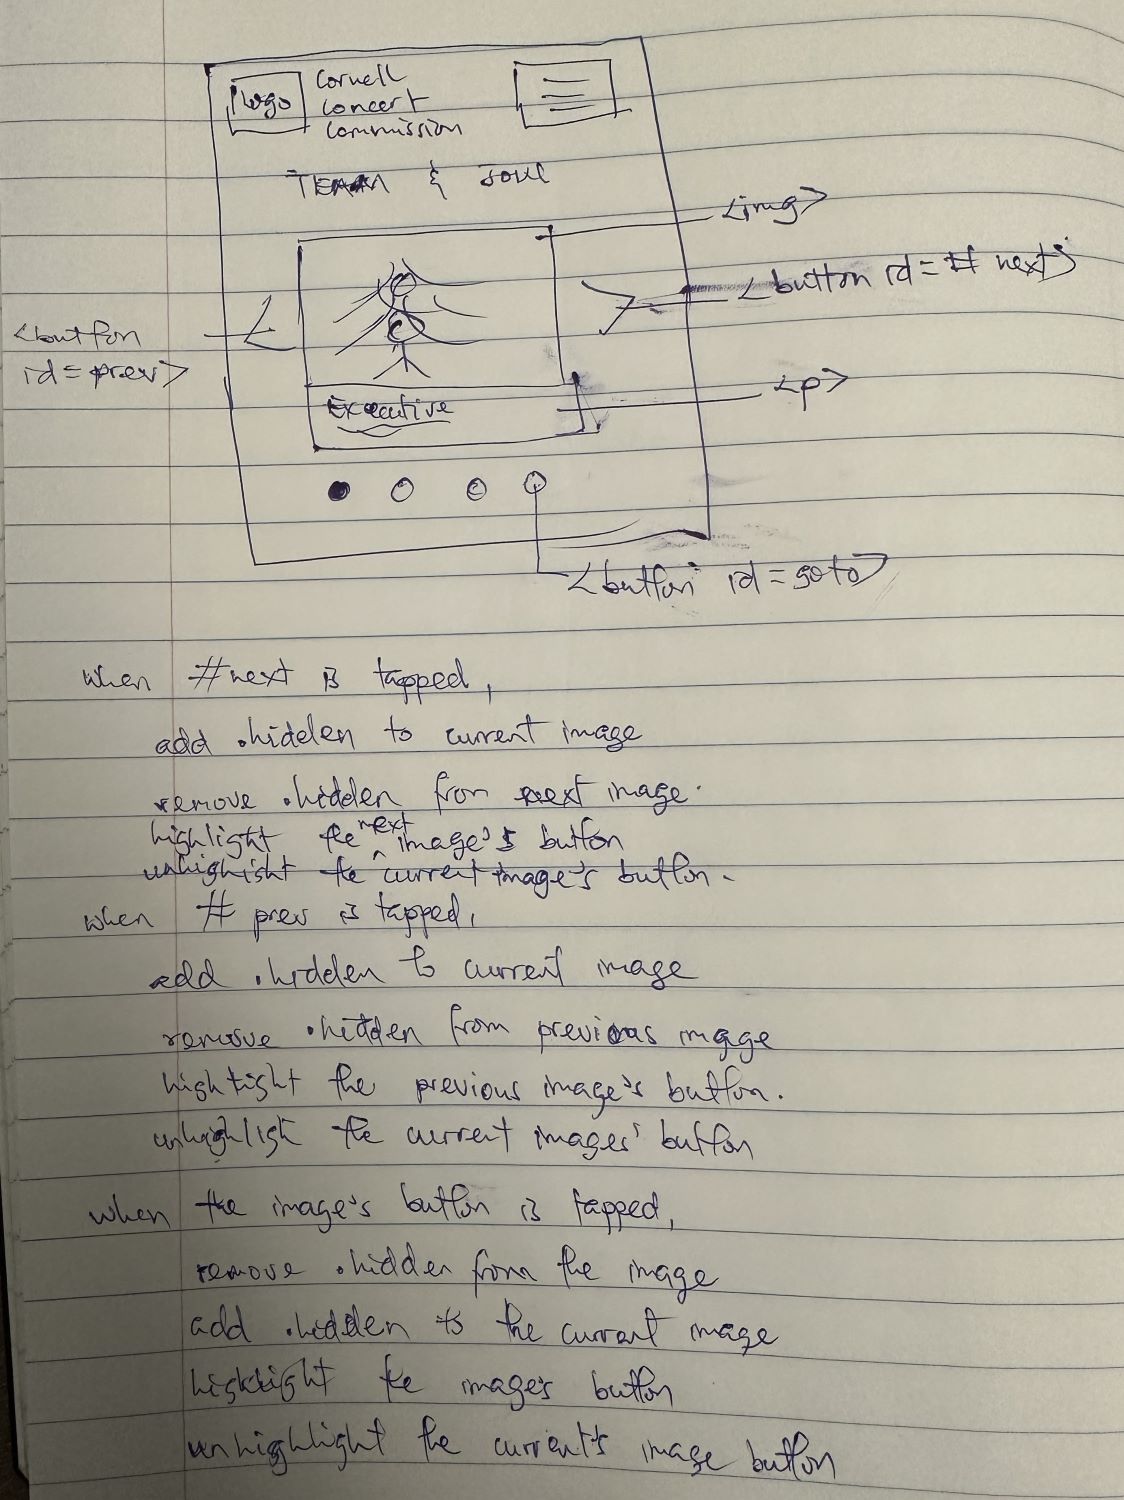 Logo
Cornell
Concert
Commission
TEAM & SOUL
<img>
<button id = # next>
<button
id = prev>
<p>
Executive
<button id = goto>
when #next is tapped,
add .hidden to current image
remove .hidden from next image.
highlight the next image's button
unhighlight the current image's button.
when # prev is tapped,
add .hidden to current image
remove .hidden from previous image
highlight the previous image's button.
unhighlight the current images' button
when the image's button is tapped,
remove .hidden from the image
add .hidden to the current image
highlight the image's button
unhighlight the current's image button